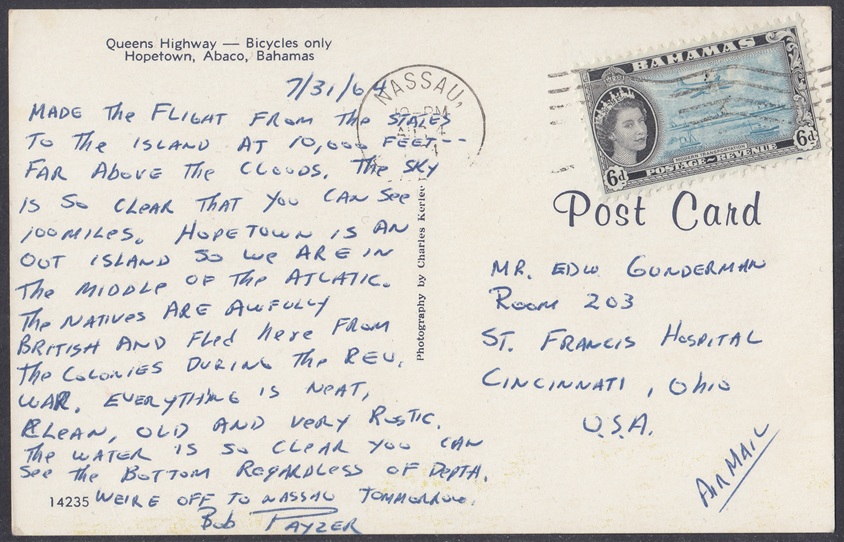 Queens Highway — Bicycles only
Hopetown, Abaco, Bahamas
7/31/64
MADE The FLIGHT FROM the STATES
TO The ISLAND AT 10,000 FEET--
FAR ABOVE The CLOUDS. The SKY
IS SO CLEAR THAT YOU CAN SEE
100 MILES. HOPETOWN IS AN
OUT ISLAND SO WE ARE IN
The MIDDLE OF The ATLATIC.
The NATIVES ARE AWFULLY
BRITISH AND Fled here FROM
The COLONIES DURING The REV.
WAR. EVERYTHING IS NEAT,
CLEAN, OLD AND VERY RUSTIC.
The WATER IS SO CLEAR YOU CAN
See the BOTTOM REGARDLESS OF DEPTH.
WEIRE OFF TO NASSAU TOMMORROW.
BOB PAYZER
14235
Photography by Charles Kerlee
NASSAU,
PM
BAHAMAS
MODERN TRANSPORTATION
POSTAGE REVENUE
6d
6d
Post Card
MR. EDW. GUNDERMAN
ROOM 203
ST. FRANCIS HOSPITAL
CINCINNATI, Ohio
U.S.A.
AIR MAIL